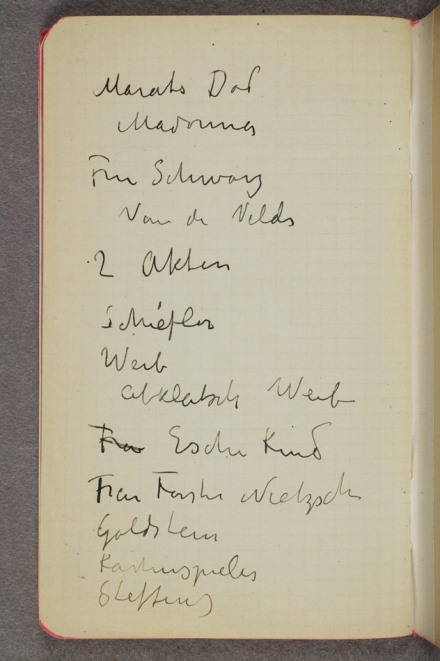 Marats Død
Madonna
Fru Schwarz
Van de Velde
2 Akten
Schiefler
Weib
abklatsch Weib
Frau Esche Kind
Frau Førster Nietzsche
Goldstein
Kartenspieler
Steffens